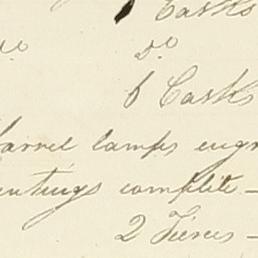 Casks
do do
6 Casks
Barrel lamps engr
untings complete -
2 Tierces -